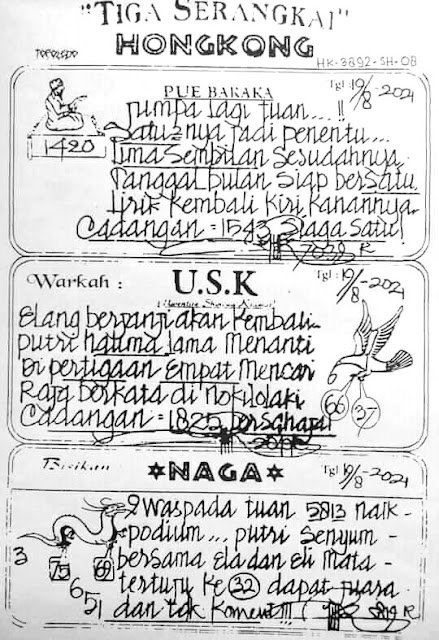 "TIGA SERANGKAI"
HONGKONG
TOPOLEDO
HK-3892-SH-08
PUE BAKAKA
Tgl: 19/8-2021
Jumpa lagi tuan...!!
Satu2nya jadi penentu...
Lima Sembilan Sesudahnya
Tanggal bulan Siap bersatu
Lirik kembali kiri kanannya
1420
Cadangan = 1543 Siaga Satu!
7038 R
Warkah :
U.S.K
Tgl : 19/8-2021
Elang berjanji akan kembali...
Putri hatuma lama menanti
Di pertigaan Empat mencari
Raja berkata di
Cadangan = 1825 bersahaja!
66 37
Bisikan
NAGA
Tgl 19/8-2021
Waspada tuan 5813 naik -
podium... putri senyum -
bersama Ela dan Eli mata -
tertuju ke 32 dapat juara
dan tak koment!!!
3
75 69
6
51